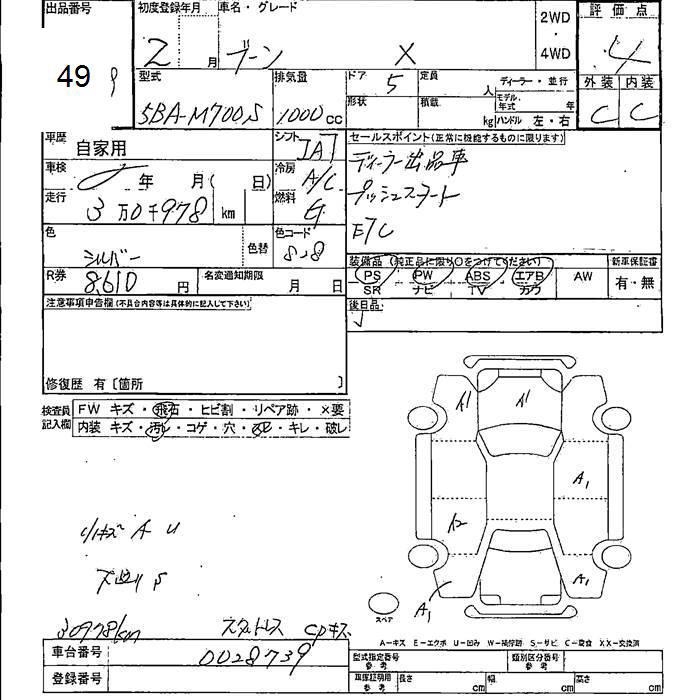 出品番号 初度登録年月 車名・グレード 2WD 評価点
49 2 月 ブーン X ・ 4WD 4
型式 排気量 ドア 5 定員 人 ディーラー・並行 外装 内装
5BA-M700S 1000cc 形状 積載 kg モデル年式 年 ハンドル 左・右 C C
車歴 自家用 シフト IAT セールスポイント(正常に機能するものに限ります)
車検 年 月( 日) 冷房 A/C ディーラー出品車
走行 3万0千978 km 燃料 G プッシュスタート
色 シルバー 色替 色コード E7C
R券 8,610 円 名変通知期限 月 日 装備品(純正品に限り○をつけてください) 新車保証書
PS PW ABS エアB AW 有・無
SR ナビ TV カワ
注意事項申告欄(不具合内容等は具体的に記入して下さい) 後日品
修復歴 有〔箇所 〕
検査員記入欄 FW キズ・飛石・ヒビ割・リペア跡・×要
内装 キズ・汚レ・コゲ・穴・・キレ・破レ
A1 A1
A1
A2
A1
小キズ A U
A1
スペア
30978km スタットレス
A-キズ E-エクボ U-凹み W-補修跡 S-サビ C-腐食 XX-交換済
車台番号 0028739 型式指定番号 参考 類別区分番号 参考
登録番号 車庫証明用 参考 長さ cm 幅 cm 高さ cm